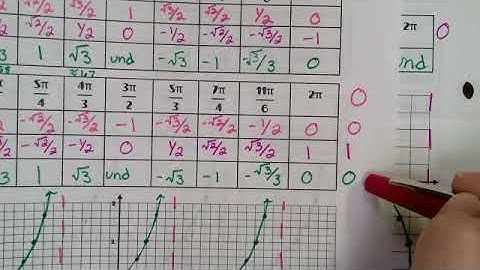 √3/2 √3/2 1 √3/2 √2/2 1/2 0
√2/2 1/2 0 -1/2 -√2/2 -√3/2 -1 2π 0
1 √3 und -√3 -1 -√3/3 0 und
5π/4 4π/3 3π/2 5π/3 7π/4 11π/6 2π 0
-√2/2 -√3/2 -1 -√3/2 -√2/2 -1/2 0 0
-√2/2 -1/2 0 1/2 √2/2 √3/2 1 1
1 √3 und -√3 -1 -√3/3 0 0
2
1